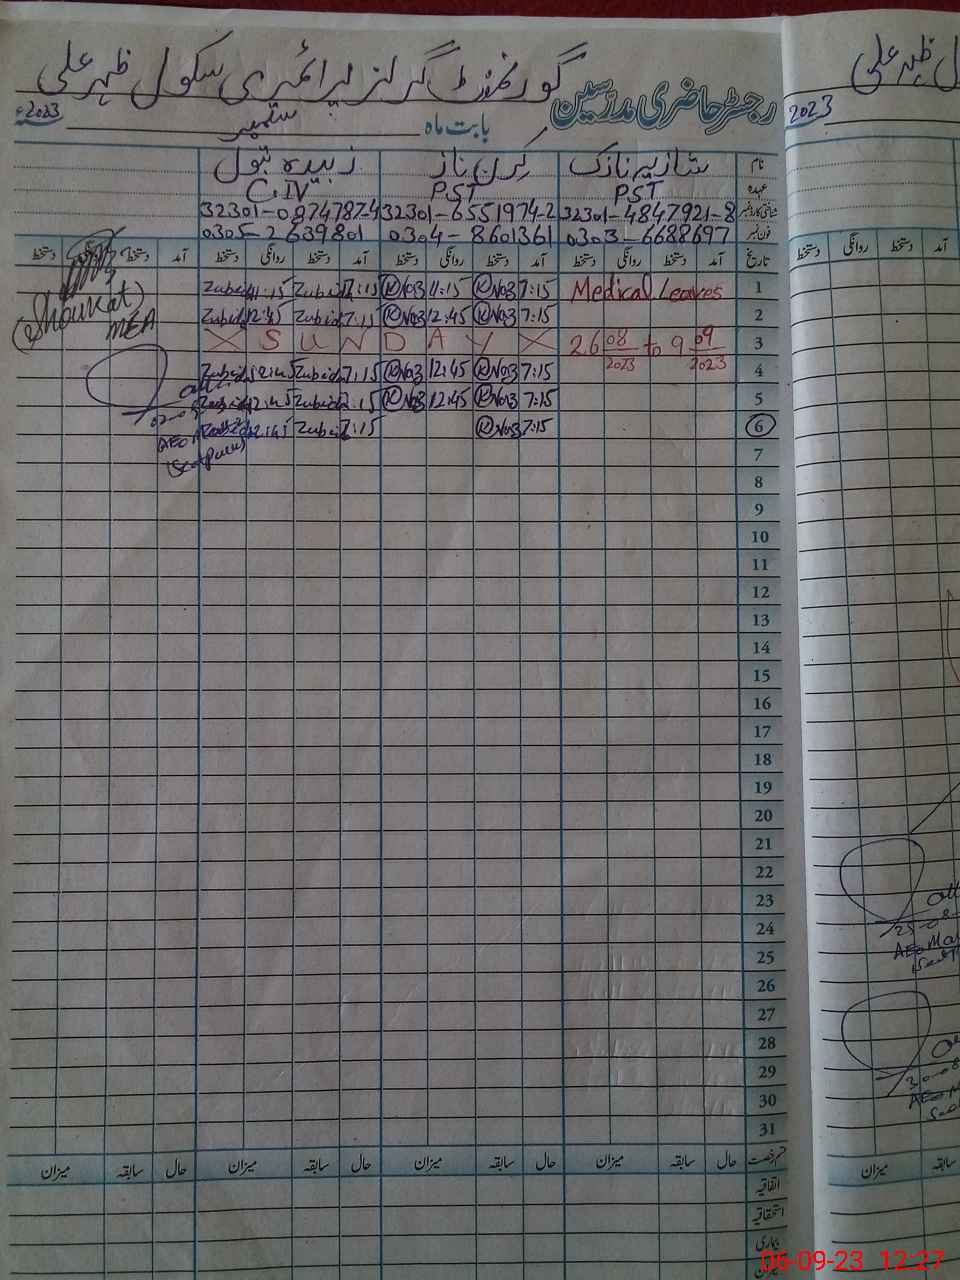 گورنمنٹ گرلز پرائمری سکول ظہر علی
رجسٹر حاضری مدرسین
بابت ماہ ستمبر 2023ء
نام شازیہ نازک کرن ناز زبیدہ بتول
عہدہ PST PST C.IV
شناختی کارڈ نمبر 32301-4847921-8 32301-6551974-2 32301-0874787-4
فون نمبر 0303-6688697 0304-8601361 0305-2639801
تاریخ آمد دستخط روانگی دستخط آمد دستخط روانگی دستخط آمد دستخط روانگی دستخط آمد دستخط دستخط
1 Medical Leaves 7:15 11:15 7:15 Zubaid 11:15
2 7:15 12:45 7:15 Zubaid 12:45
3 26 08/2023 to 9 09/2023 X S U N D A Y X
4 7:15 12:45 7:15 Zubaid
5 7:15 12:45 7:15 Zubaid 12:45
6 7:15 7:15 Zubaid 12:45
7
8
9
10
11
12
13
14
15
16
17
18
19
20
21
22
23
24
25
26
27
28
29
30
31
(Shoukat)
MEA
AEO
قسم رخصت حال سابقہ میزان حال سابقہ میزان حال سابقہ میزان حال سابقہ میزان
اتفاقیہ
استحقاقیہ
بیماری
میزان
ظہر علی
2023
آمد دستخط روانگی دستخط
25-08
AEO
30-08
AEO
سابقہ میزان
06-09-23 12:27